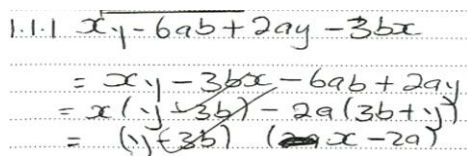 1.1.1 xy - 6ab + 2ay - 3bx
= xy - 3bx - 6ab + 2ay
= x(y - 3b) - 2a(3b + y)
= (y - 3b) (x - 2a)